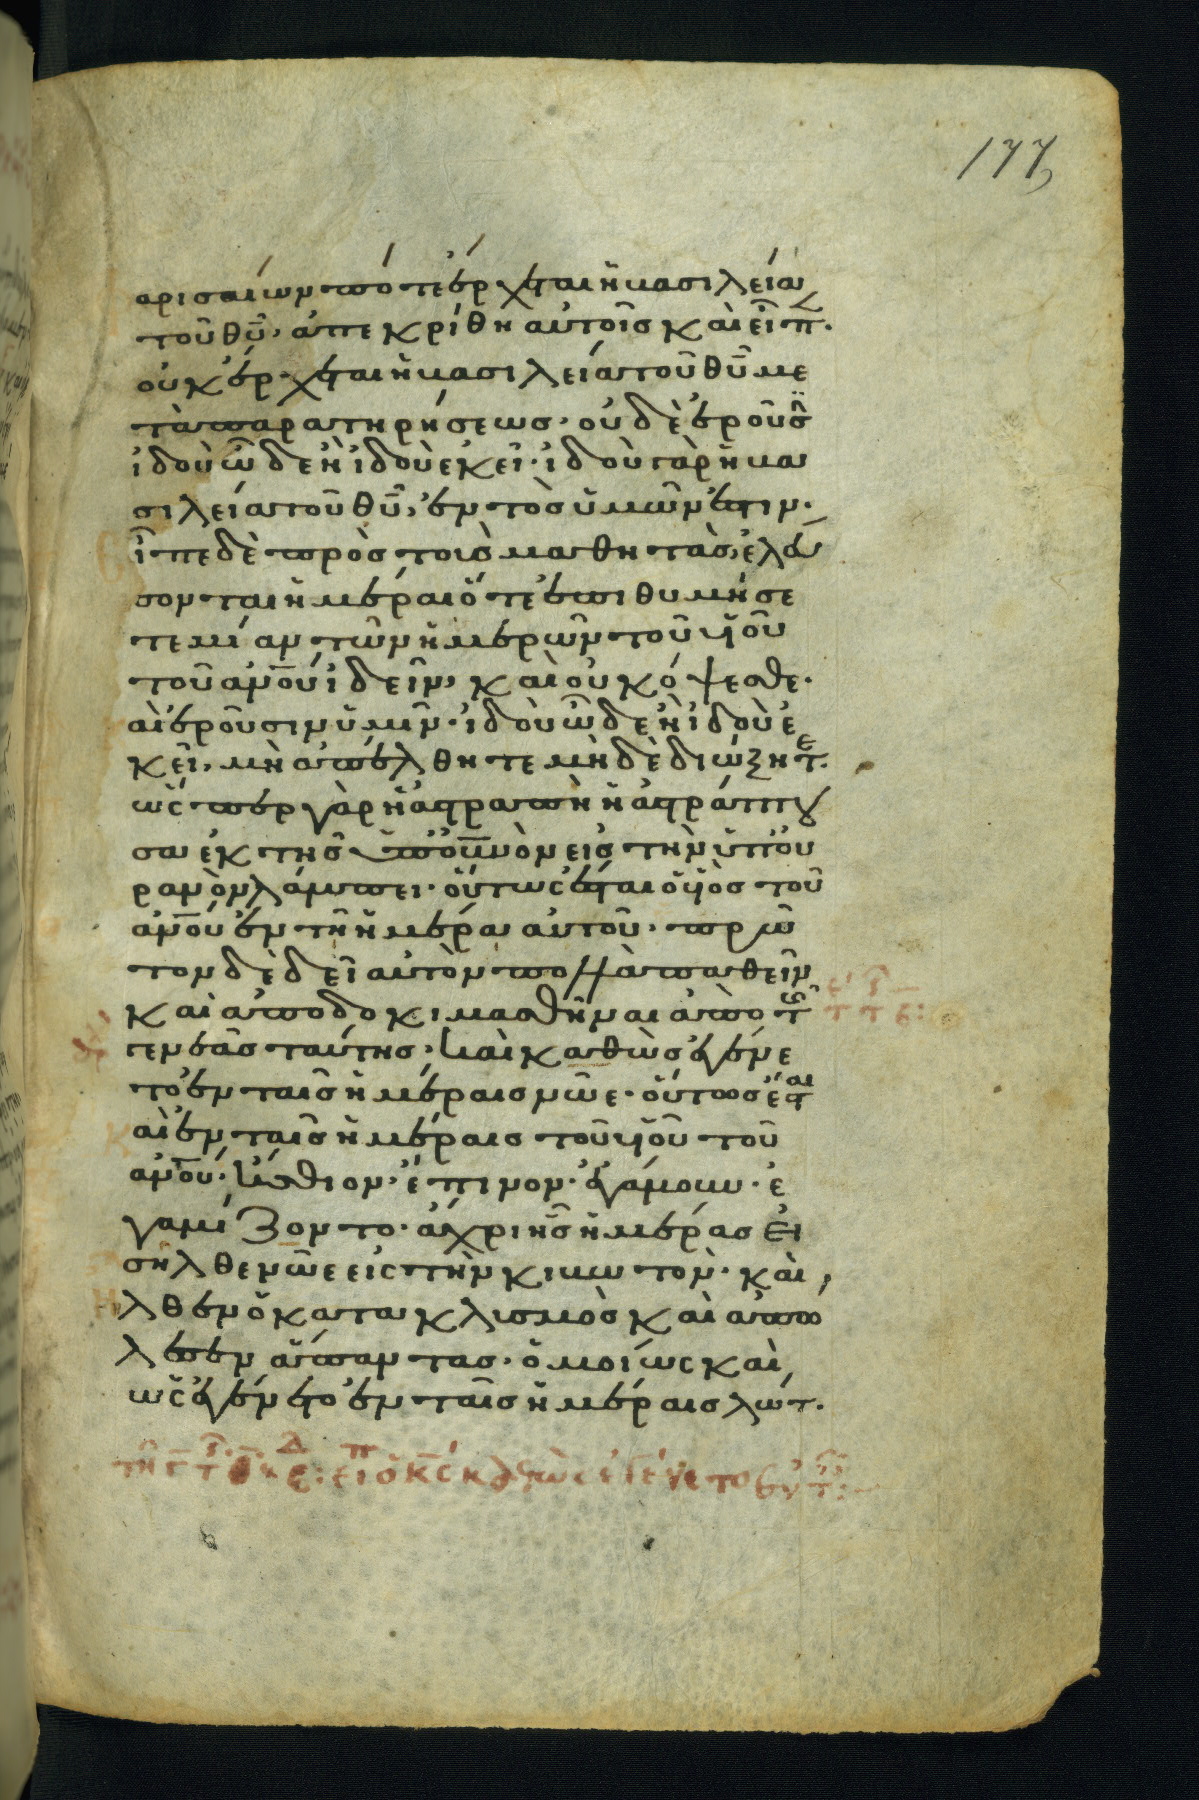 177
αρισαίων πότε ἔρχεται ἡ βασιλεία
τοῦ θῦ, ἀπεκρίθη αὐτοῖς καὶ εἶπ.
οὐκ ἔρχεται ἡ βασιλεία τοῦ θῦ με
τὰ παρατηρήσεως· οὐδὲ ἐροῦσ̈
ἰδοὺ ὧδε ἢ ἰδοὺ ἐκεῖ· ἰδοὺ γὰρ ἡ βα
σιλεία τοῦ θῦ, ἐντὸς ὑμῶν ἐστιν.
ἶπε δὲ πρὸς τοὺς μαθητάς, ἐλεύ
σονται ἡμέραι ὅτε ἐπιθυμήσε
τε μίαν τῶν ἡμερῶν τοῦ υἱοῦ
τοῦ ἀνου ἰδεῖν, καὶ οὐκ όψεσθε.
αὶ ἐροῦσιν ὑμῖν· ἰδοὺ ὧδε ἢ ἰδοὺ ἐ
κεῖ, μὴ ἀπέλθητε μὴ δὲ διώξητε.
ὥσπερ γὰρ ἡ ἀστραπὴ ἡ ἀστράπτου
σα ἐκ τῆς ὑπ' οὐνὸν εἰς τὴν ὑπ' οὐ
ρανὸν λάμπει· οὕτως ἔσται ὁ υἱὸς τοῦ
ἀνου ἐν τῆ ἡμέρα αὐτοῦ· πρῶ
τον δὲ δεῖ αὐτὸν πολλὰ παθεῖν
καὶ ἀποδοκιμασθῆναι ἀπὸ τῆς
γενεᾶς ταύτης· καὶ καθὼς ἐγένε
το ἐν ταῖς ἡμέραις νῶε· οὕτως ἔσται
αὶ ἐν ταῖς ἡμέραις τοῦ υἱοῦ τοῦ
ἀνου· ἤσθιον· ἔπινον· ἐγάμουν· ἐ
γαμίζοντο· ἄχρι ἧς ἡμέρας εἰ
σῆλθε νῶε εἰς τὴν κιβωτόν· καὶ
λθεν ὁ κατακλισμὸς καὶ ἀπώ
λεσεν ἅπαντας· ὁμοίως καὶ
ὡς ἐγένετο ἐν ταῖς ἡμέραις λώτ.